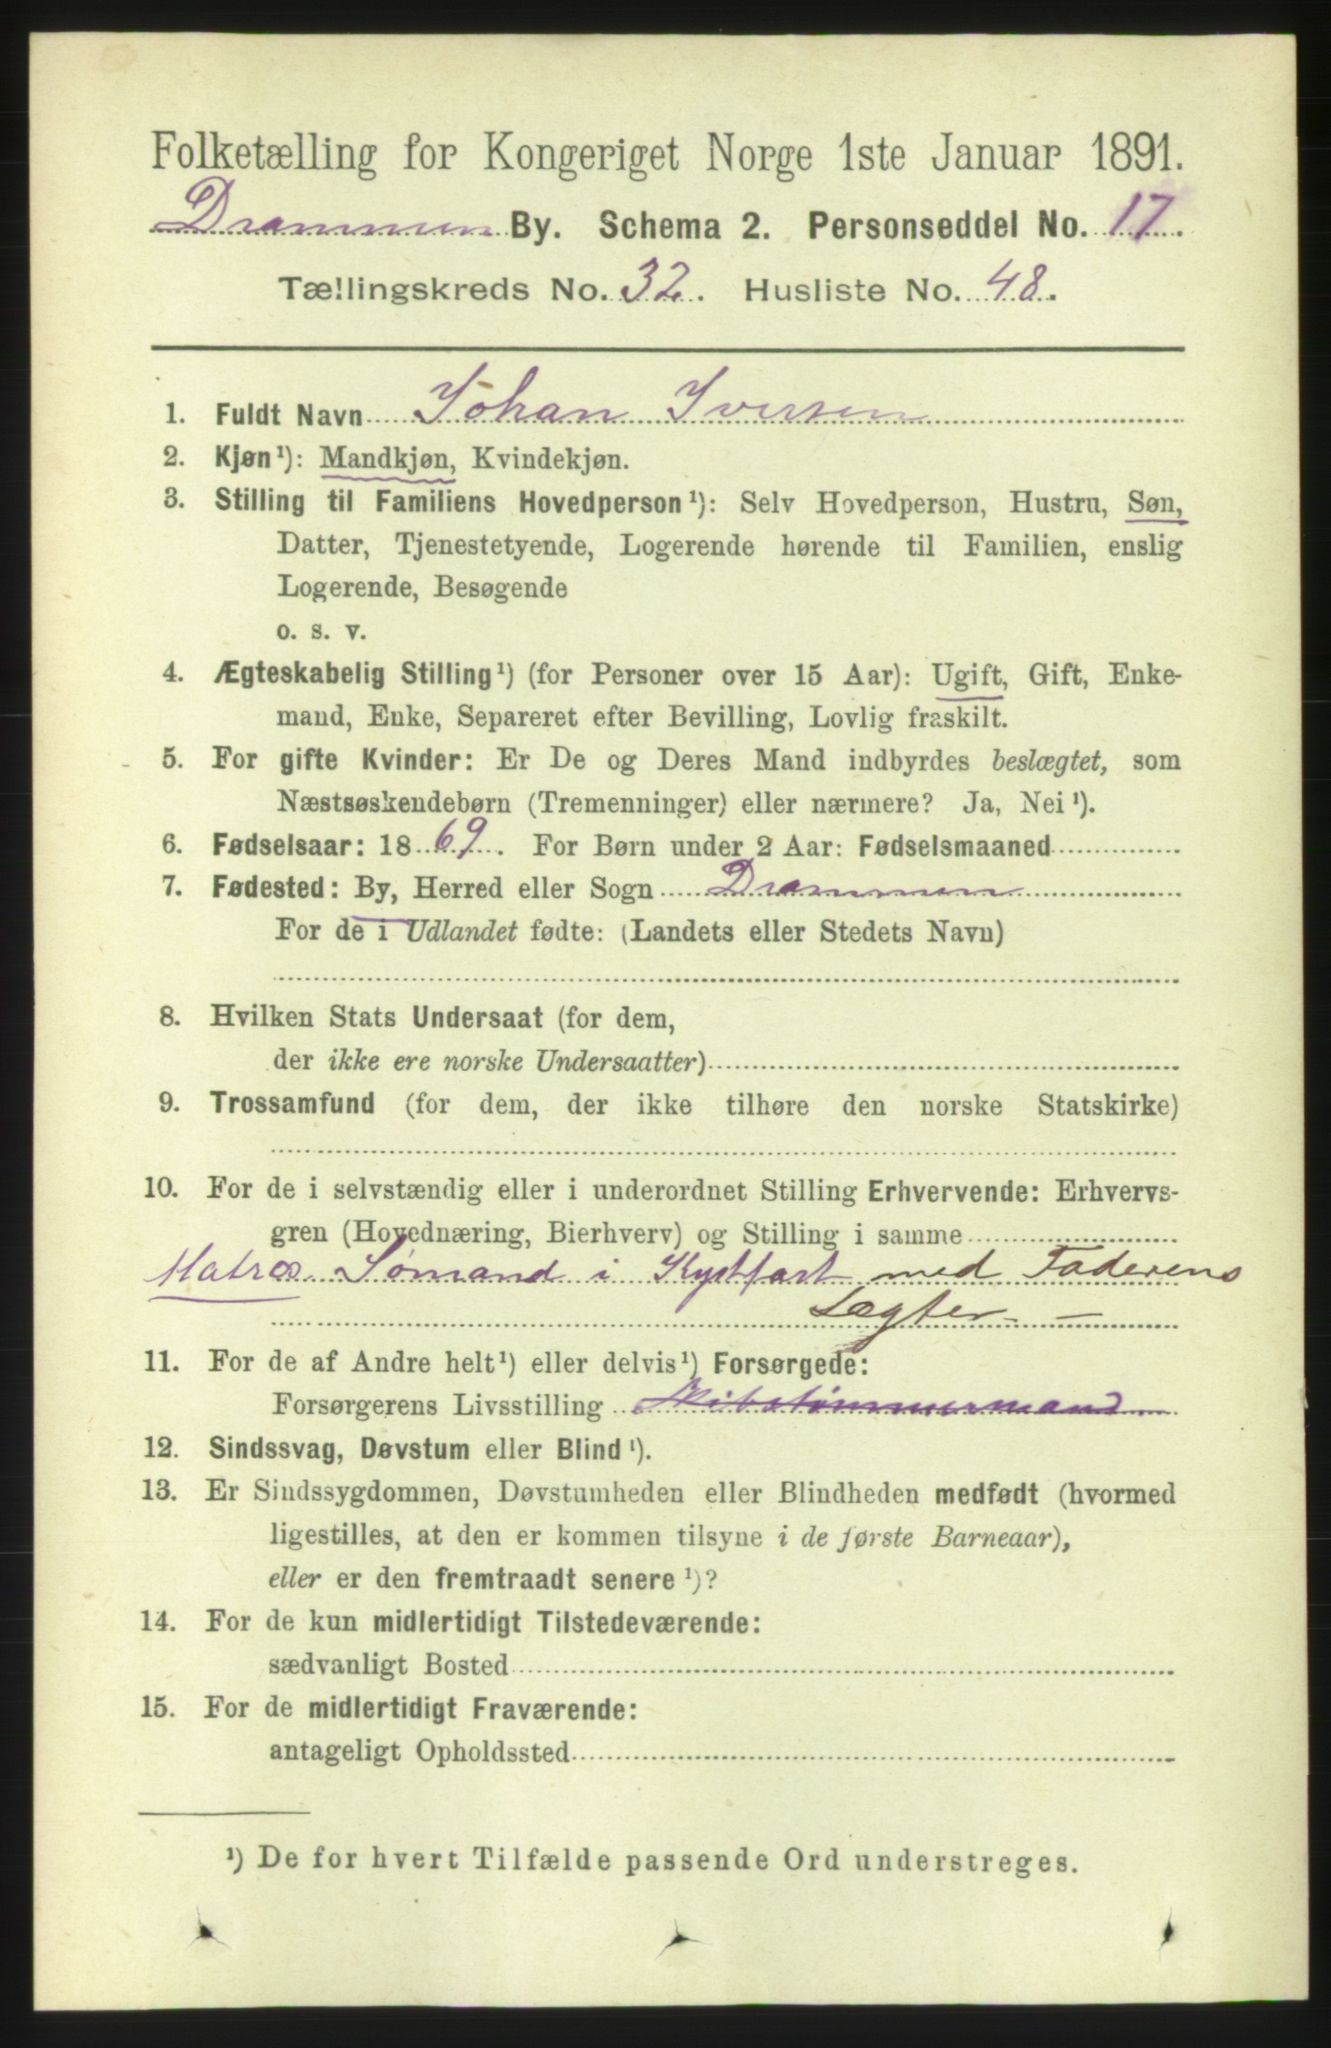 Folketælling for Kongeriget Norge 1ste Januar 1891.
Drammen By. Schema 2. Personseddel No. 17.
Tællingskreds No. 32. Husliste No. 48.
1. Fuldt Navn Johan Iversen
2. Kjøn¹): Mandkjøn, Kvindekjøn.
3. Stilling til Familiens Hovedperson¹): Selv Hovedperson, Hustru, Søn,
Datter, Tjenestetyende, Logerende hørende til Familien, enslig
Logerende, Besøgende
o. s. v.
4. Ægteskabelig Stilling¹) (for Personer over 15 Aar): Ugift, Gift, Enke-
mand, Enke, Separeret efter Bevilling, Lovlig fraskilt.
5. For gifte Kvinder: Er De og Deres Mand indbyrdes beslægtet, som
Næstsøskendebørn (Tremenninger) eller nærmere? Ja, Nei¹).
6. Fødselsaar: 1869. For Børn under 2 Aar: Fødselsmaaned
7. Fødested: By, Herred eller Sogn Drammen
For de i Udlandet fødte: (Landets eller Stedets Navn)
8. Hvilken Stats Undersaat (for dem,
der ikke ere norske Undersaatter)
9. Trossamfund (for dem, der ikke tilhøre den norske Statskirke)
10. For de i selvstændig eller i underordnet Stilling Erhvervende: Erhvervs-
gren (Hovednæring, Bierhverv) og Stilling i samme
Matros Sømand i Kystfart med Faderens
Lægter
11. For de af Andre helt¹) eller delvis¹) Forsørgede:
Forsørgerens Livsstilling Skibstømmermand
12. Sindssvag, Døvstum eller Blind¹).
13. Er Sindssygdommen, Døvstumheden eller Blindheden medfødt (hvormed
ligestilles, at den er kommen tilsyne i de første Barneaar),
eller er den fremtraadt senere¹)?
14. For de kun midlertidigt Tilstedeværende:
sædvanligt Bosted
15. For de midlertidigt Fraværende:
antageligt Opholdssted
¹) De for hvert Tilfælde passende Ord understreges.